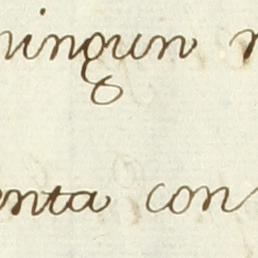 ningun
enta con